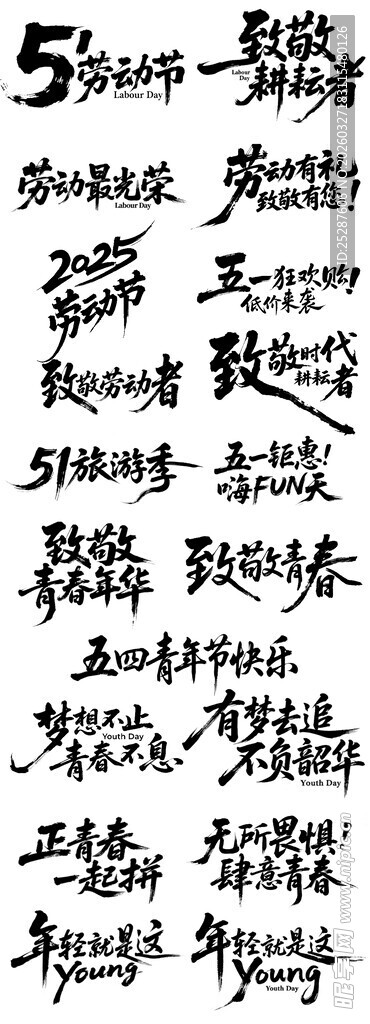 51劳动节
Labour Day
致敬
Labour
Day
耕耘者
劳动最光荣
Labour Day
劳动有礼
致敬有您!
2025
劳动节
五一狂欢购!
低价来袭
致敬劳动者
致敬时代
耕耘者
51旅游季
五一钜惠!
嗨FUN天
致敬
青春年华
致敬青春
五四青年节快乐
梦想不止
Youth Day
青春不息
有梦去追
不负韶华
Youth Day
正青春
一起拼
无所畏惧!
肆意青春
年轻就是这
Young
年轻就是这
Young
Youth Day
昵享网 www.nipic.cn